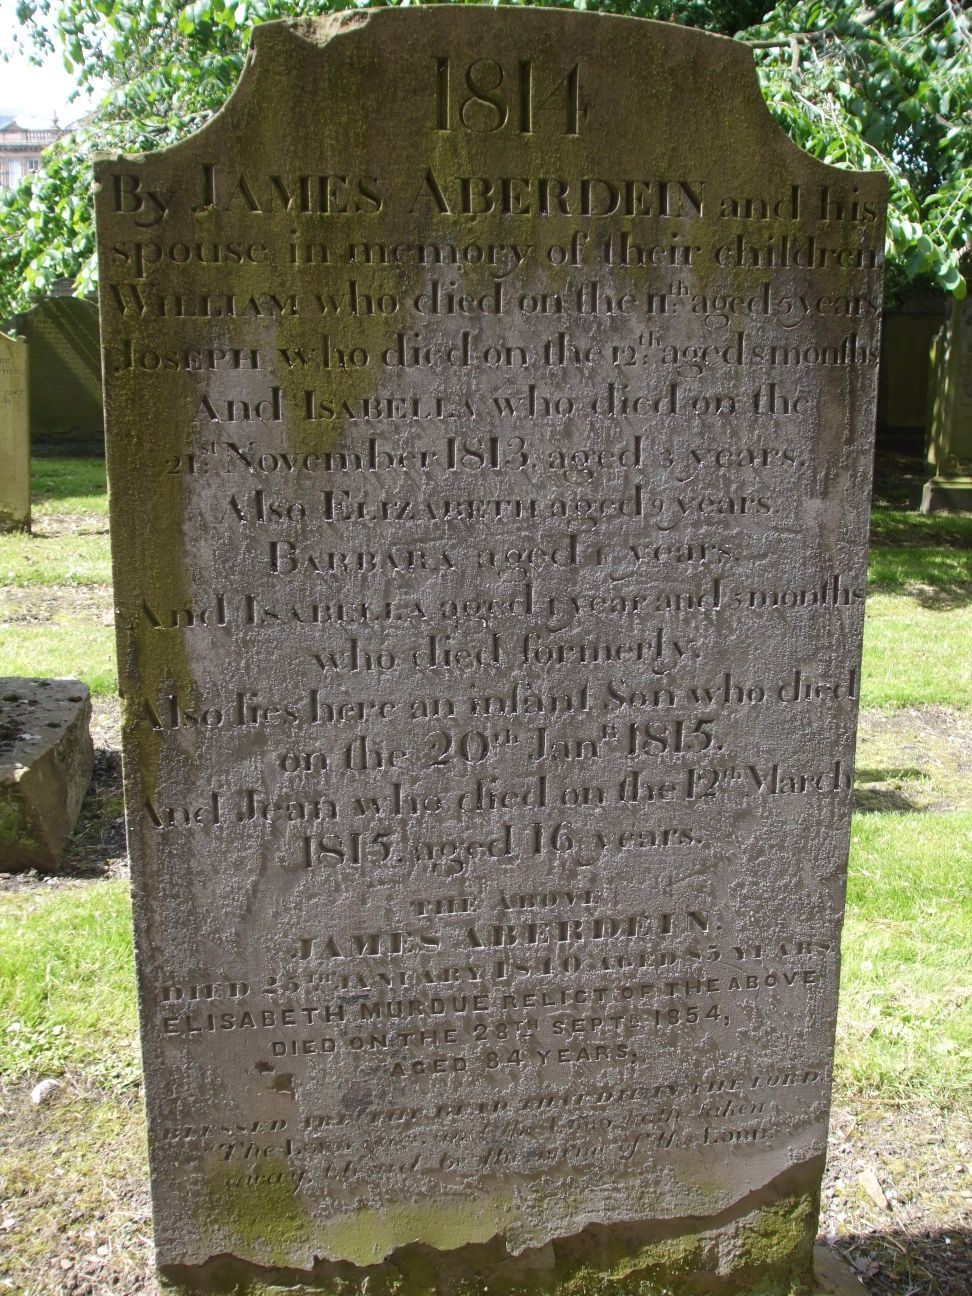 1814
By JAMES ABERDEIN and his
spouse in memory of their children
WILLIAM who died on the 11.th aged 5 years
JOSEPH who died on the 12th. aged 8 months
And ISABELLA who died on the
21.st November 1813, aged 3 years.
Also ELIZABETH aged 9 years.
BARBARA aged years.
And ISABELLA aged 1 year and 5 months
who died formerly.
Also lies here an infant Son who died
on the 20th JanR 1815.
And Jean who died on the 12th March
1815, aged 16 years.
THE ABOVE
JAMES ABERDEIN.
DIED 25TH JANUARY 1840 AGED 85 YEARS
ELISABETH MURDUE RELICT OF THE ABOVE
DIED ON THE 28TH SEPTR 1854,
AGED 84 YEARS.
BLESSED ARE THE DEAD THAT DIE IN THE LORD
"The LORD gave, and the LORD hath taken
away, blessed be the name of the LORD."